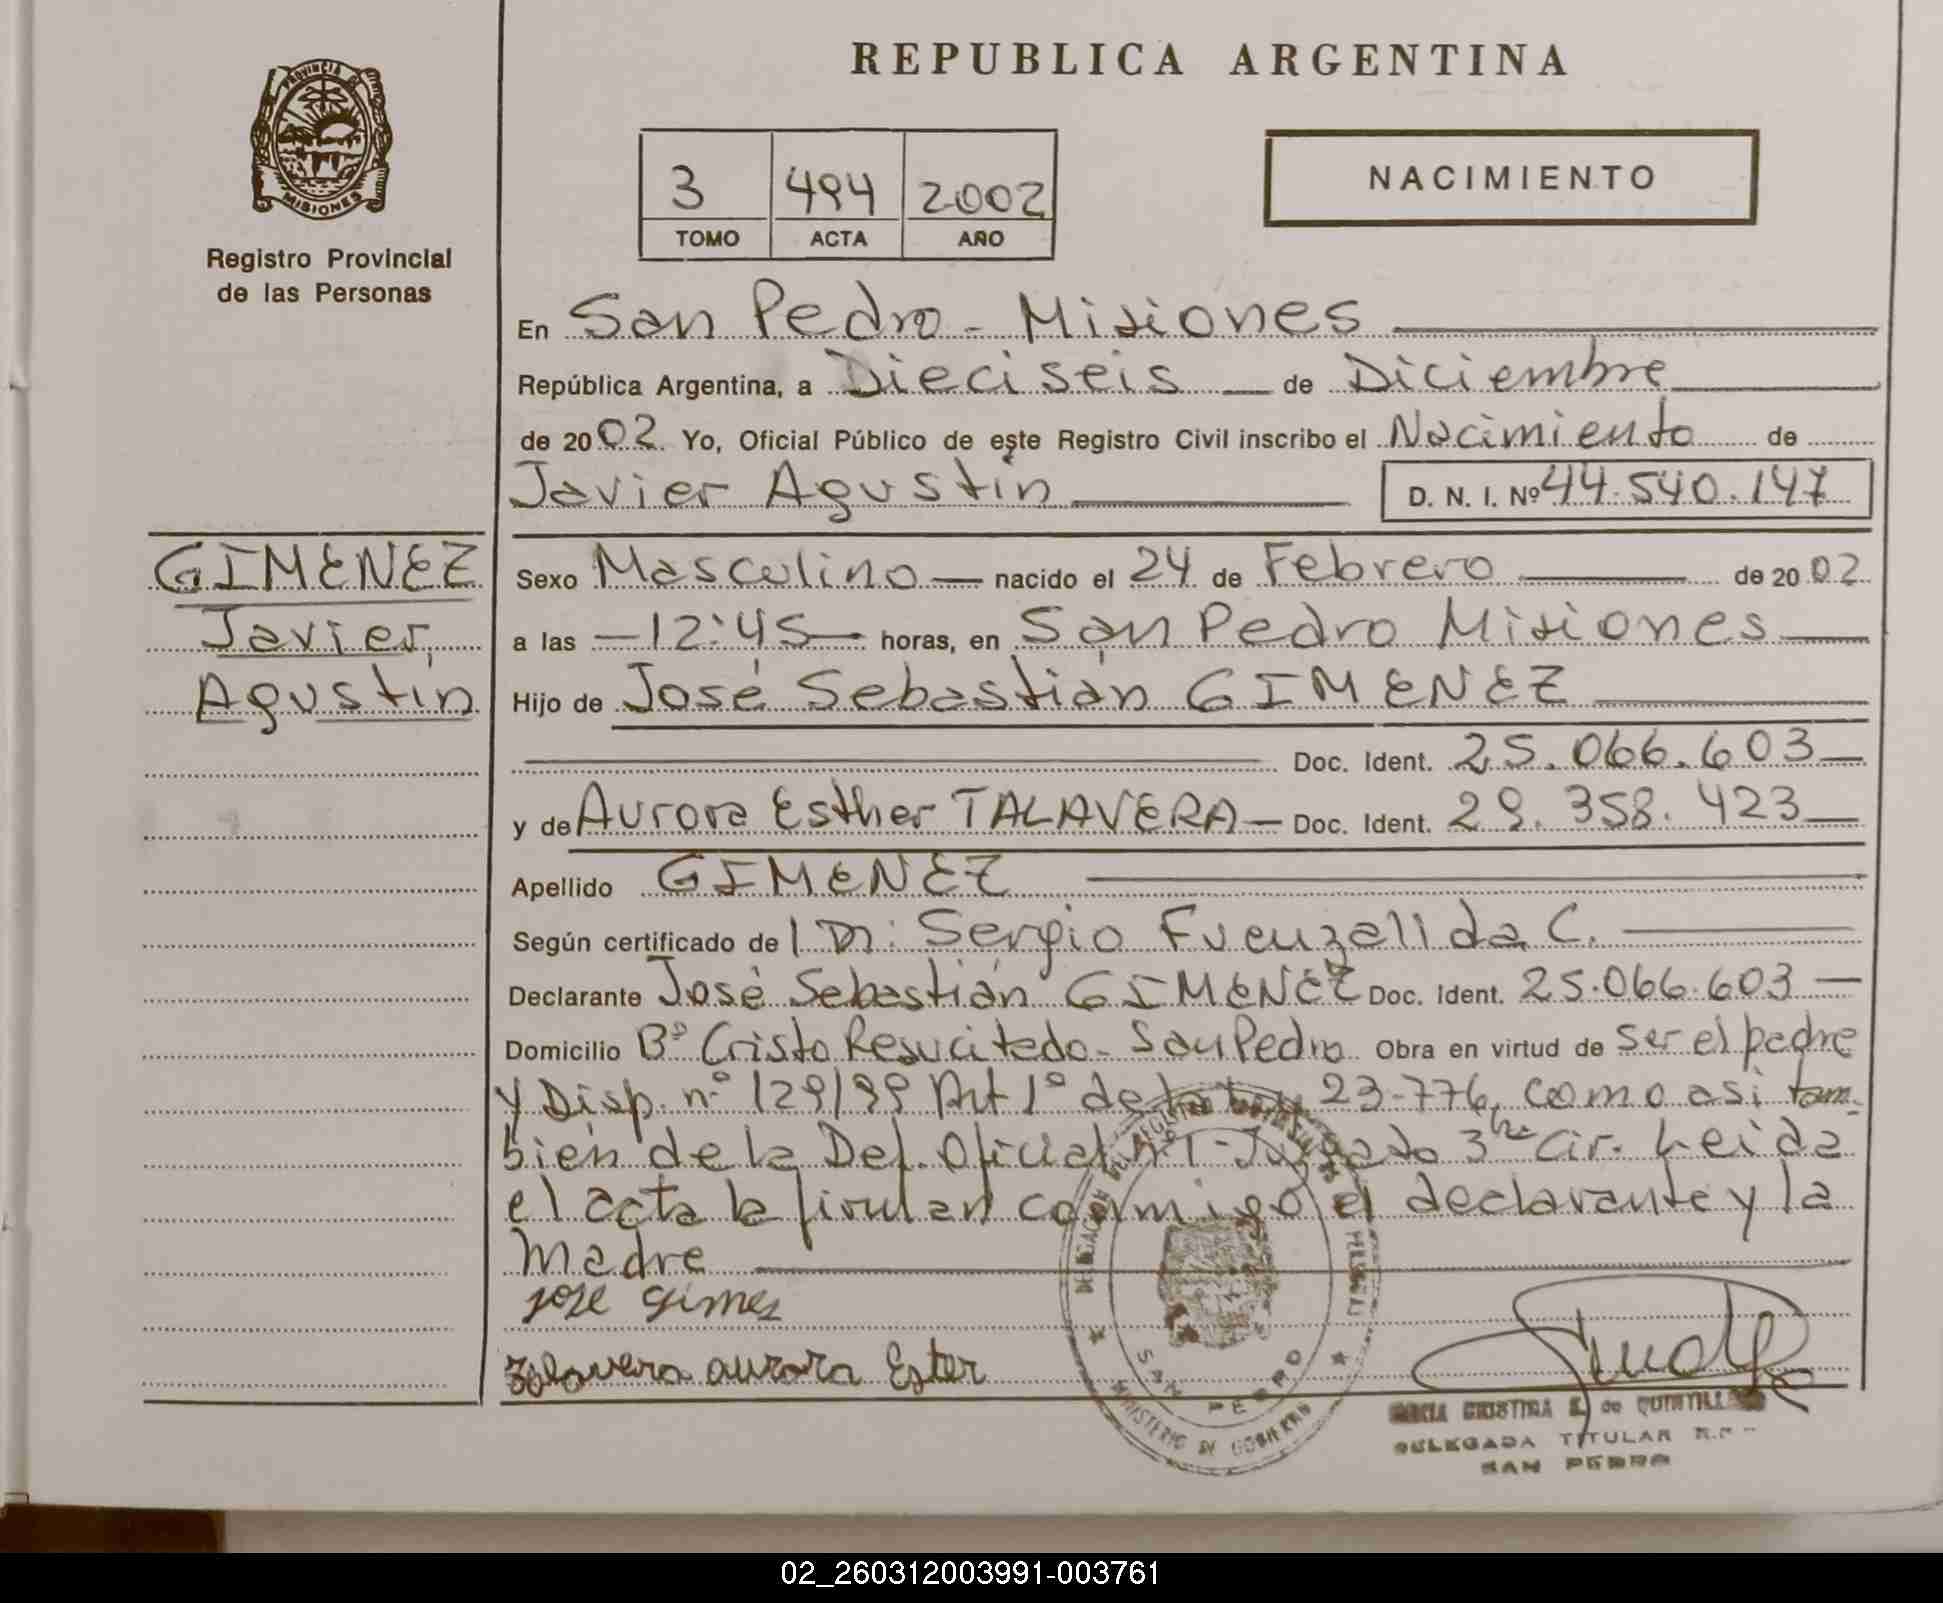 REPUBLICA ARGENTINA
PROVINCIA DE
MISIONES
Registro Provincial
de las Personas
3 494 2002
TOMO ACTA AÑO
NACIMIENTO
En San Pedro - Misiones
República Argentina, a Dieciseis de Diciembre
de 2002 Yo, Oficial Público de este Registro Civil inscribo el Nacimiento de
Javier Agustín D. N. I. Nº 44.540.147
GIMENEZ
Javier,
Agustín
Sexo Masculino nacido el 24 de Febrero de 2002
a las 12:45 horas, en San Pedro Misiones
Hijo de José Sebastián GIMENEZ
Doc. Ident. 25.066.603
y de Aurora Esther TALAVERA Doc. Ident. 29.358.423
Apellido GIMENEZ
Según certificado de Dr: Sergio Fuenzalida C.
Declarante José Sebastián GIMENEZ Doc. Ident. 25.066.603
Domicilio Bº Cristo Resucitado - San Pedro Obra en virtud de ser el padre
y Disp. nº 129/99 Art 1º de la Ley 23.776, como asi tam-
bién de la Def. Oficial nº 1 - Juzgado 3ra Cir. Leida
el acta la firman conmigo el declarante y la
Madre
jose gimes
Talavera aurora Ester
SAN PEDRO
MINISTERIO DE GOBIERNO
MARIA CRISTINA de
DELEGADA TITULAR
SAN PEDRO
02_260312003991-003761